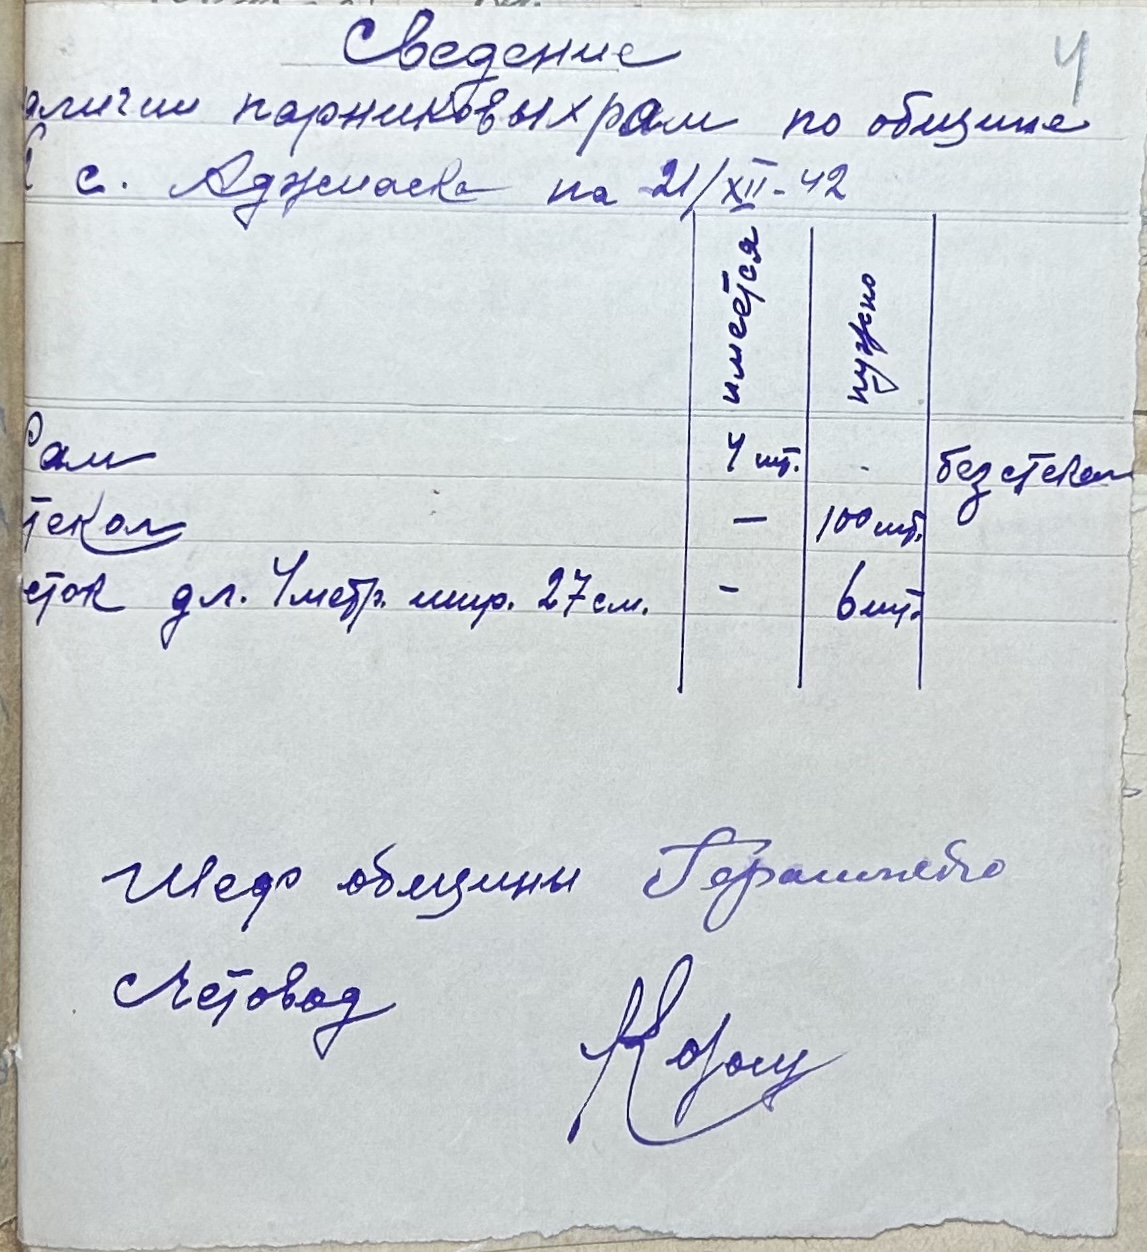 4
Сведение
аличии парниковых рам по общине
с. Аджмаска на 21/XII-42
имеется нужно
Рам 4 шт. - без стекол
текол — 100 шт.
сток дл. 1 метр. шир. 27 см. - 6 шт.
Шеф общины
Счетовод